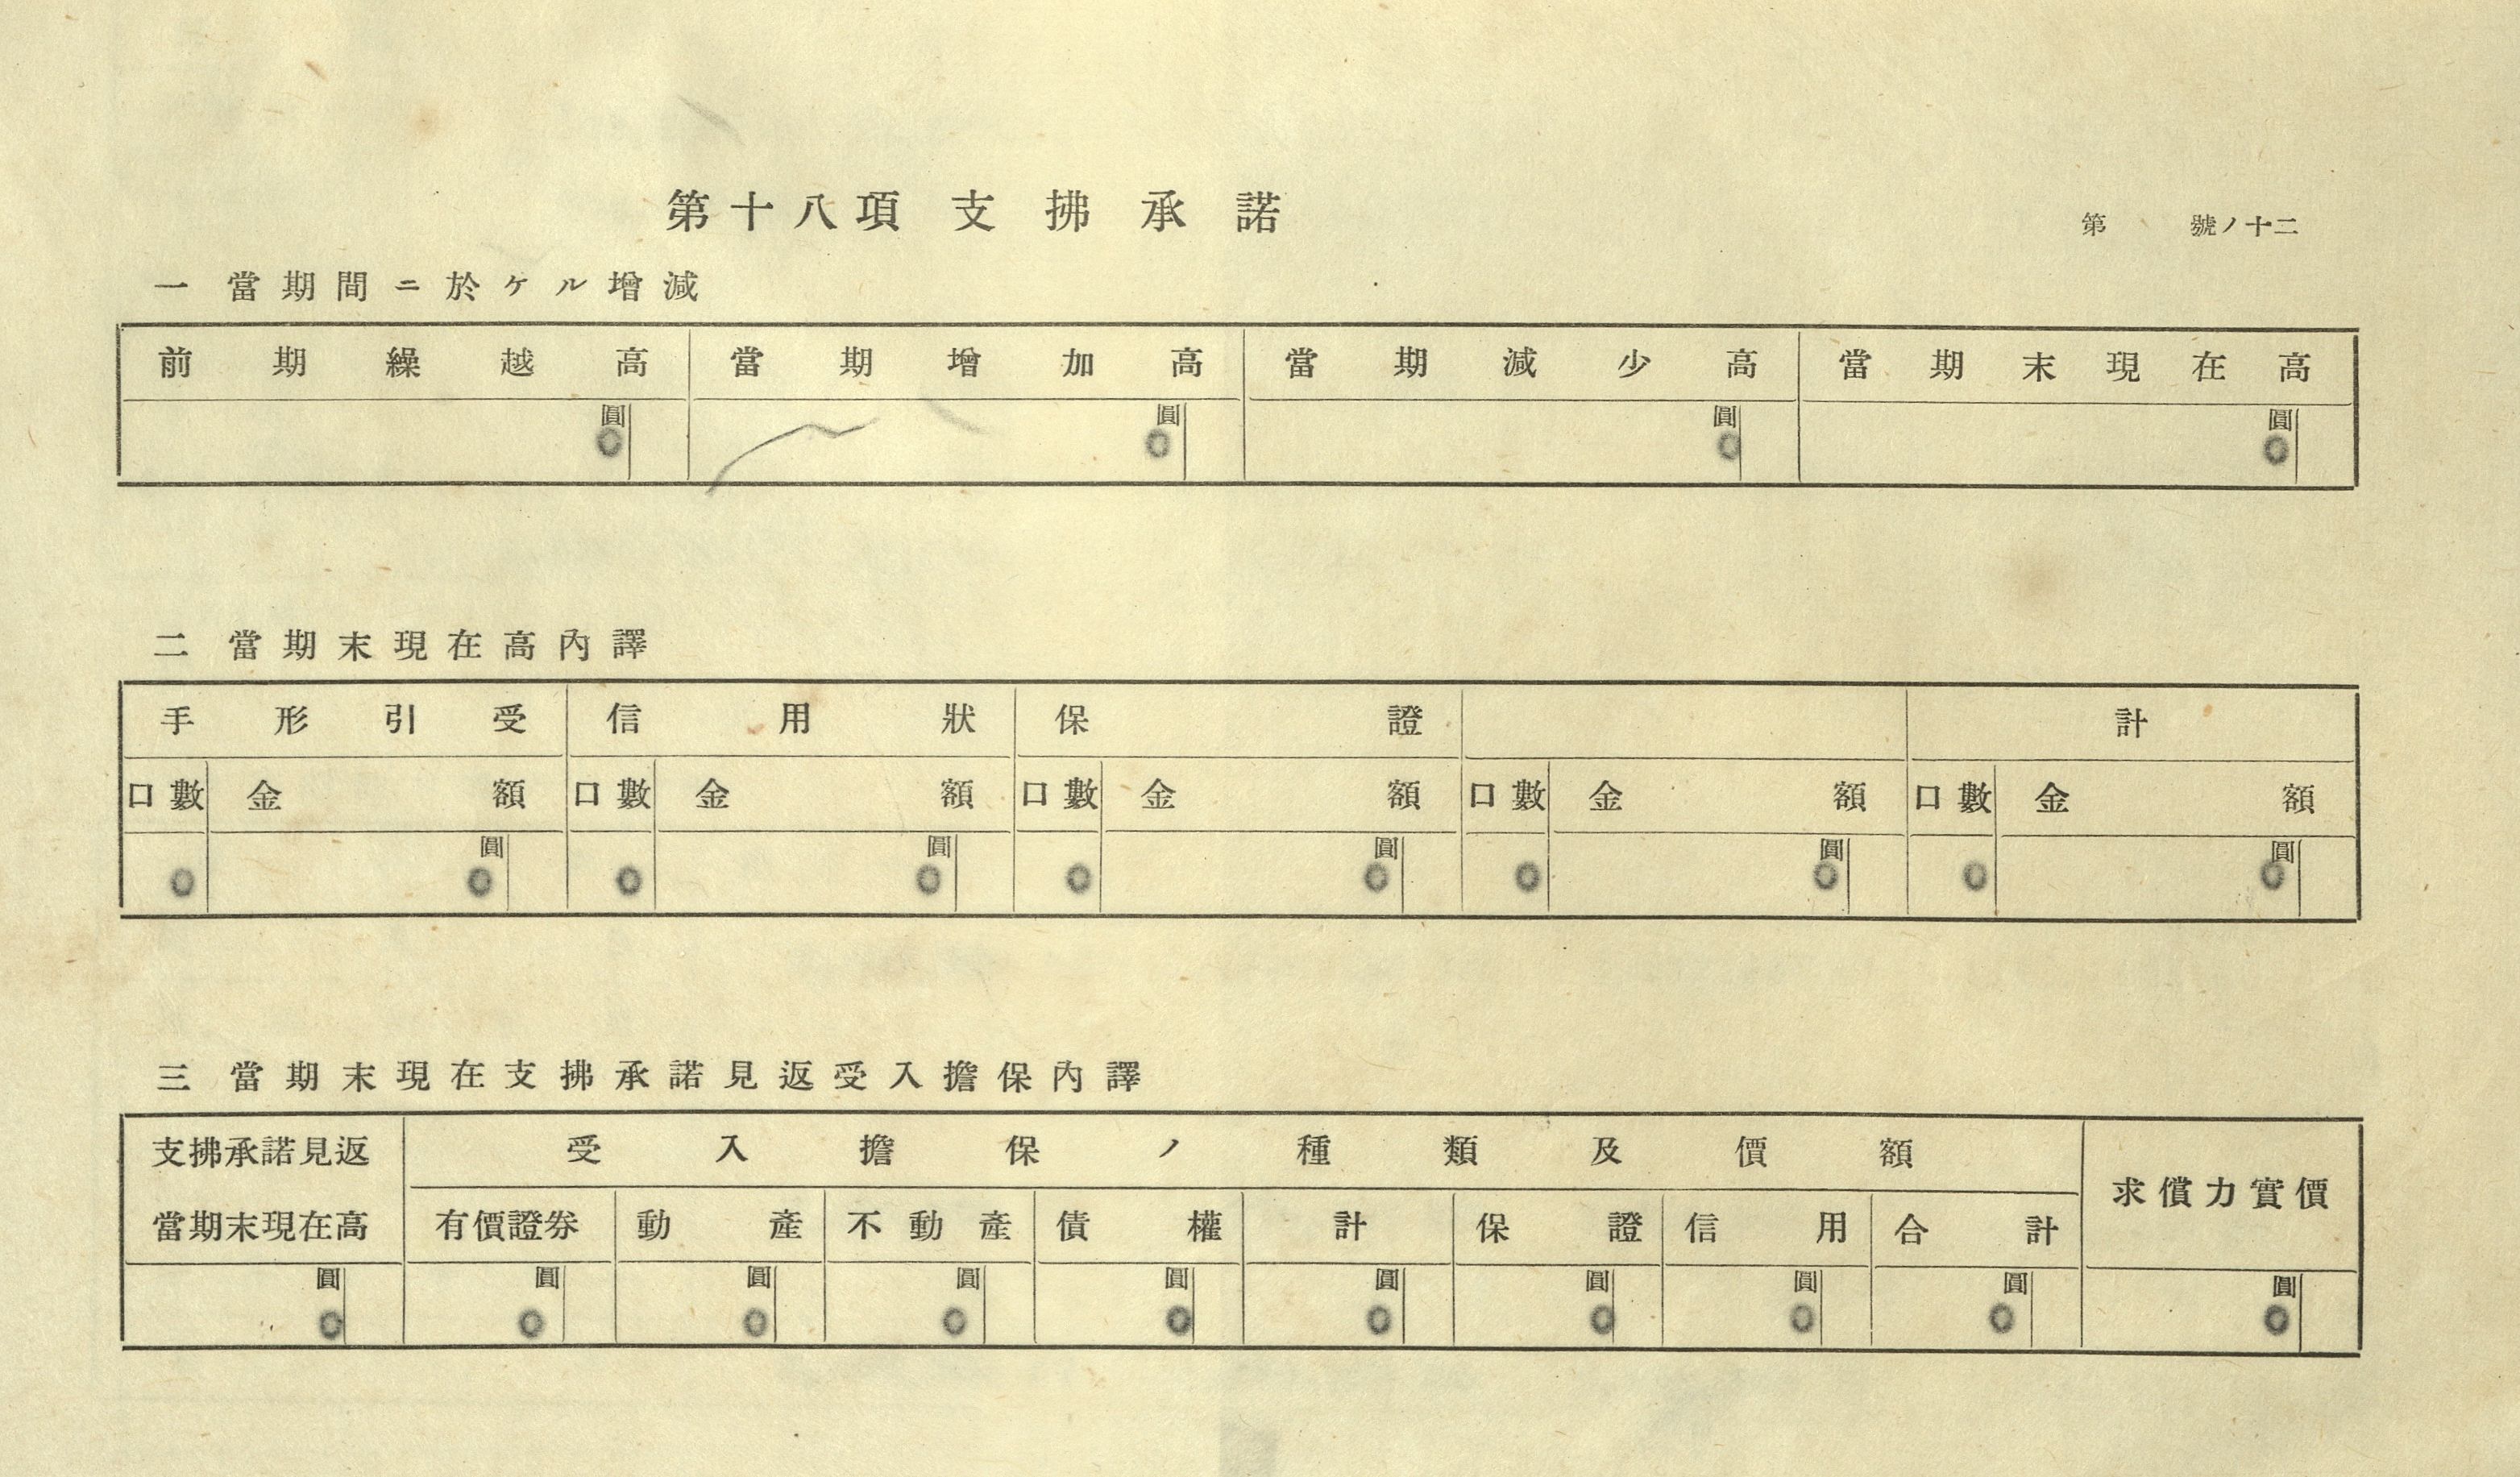 第十八項 支拂承諾
第 號ノ十二
一 當期間ニ於ケル增減
前期繰越高 當期增加高 當期減少高 當期末現在高
圓 圓 圓 圓
0 0 0 0
二 當期末現在高內譯
手形引受 信用狀 保證 計
口數 金額 口數 金額 口數 金額 口數 金額 口數 金額
圓 圓 圓 圓 圓
0 0 0 0 0 0 0 0 0 0
三 當期末現在支拂承諾見返受入擔保內譯
支拂承諾見返 受入擔保ノ種類及價額 求償力實價
當期末現在高 有價證券 動產 不動產 債權 計 保證 信用 合計
圓 圓 圓 圓 圓 圓 圓 圓 圓 圓
0 0 0 0 0 0 0 0 0 0